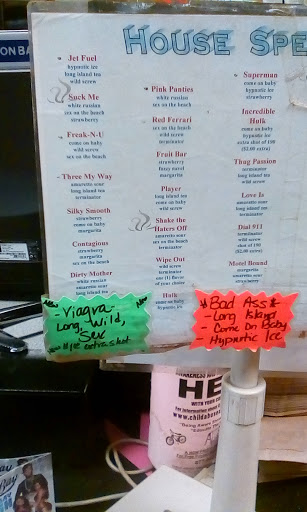 ON BA
HOUSE SPE
Jet Fuel
hypnotic ice
long island tea
wild screw
Suck Me
white russian
sex on the beach
strawberry
Freak-N-U
come on baby
wild screw
sex on the beach
Three My Way
amaretto sour
long island tea
terminator
Silky Smooth
strawberry
come on baby
margarita
Contagious
strawberry
margarita
sex on the beach
Dirty Mother
white russian
amaretto sour
Pink Panties
white russian
sex on the beach
Red Ferrari
sex on the beach
wild screw
terminator
Fruit Bar
strawberry
fuzzy navel
margarita
Player
long island tea
come on baby
wild screw
Shake the
Haters Off
amaretto sour
sex on the beach
terminator
Wipe Out
wild screw
terminator
any (1) flavor
of your choice
Hulk
come on baby
hypnotic ice
Superman
come on baby
hypnotic ice
strawberry
Incredible
Hulk
come on baby
hypnotic ice
extra shot of 190
($2.00 extra)
Thug Passion
terminator
long island tea
wild screw
Love Is
amaretto sour
strawberry
Dial 911
terminator
wild screw
extra shot of 190
($2.00 extra)
Motel Bound
margarita
amaretto sour
strawberry
- Viagra
Long, Wild,
Sex
extra shot
Bad Ass
- Long Island
- Come on Baby
- Hypnotic Ice
HE
WITH YOUR
www.childabuse